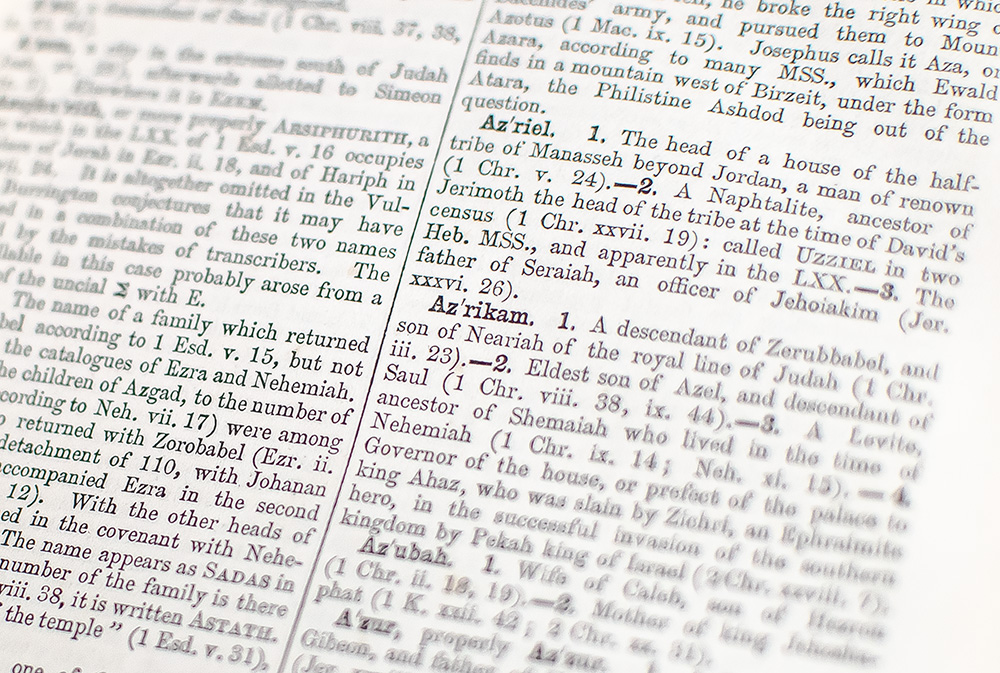 descendant of Saul (1 Chr. viii. 37, 38,
a city in the extreme south of Judah
afterwards allotted to Simeon
it is EZEM.
or more properly ARSIPHURITH, a
which in the LXX. of 1 Esd. v. 16 occupies
of Jorah in Ezr. ii. 18, and of Hariph in
It is altogether omitted in the Vul-
Burrington conjectures that it may have
in a combination of these two names
by the mistakes of transcribers. The
in this case probably arose from a
of the uncial Σ with E.
The name of a family which returned
according to 1 Esd. v. 15, but not
the catalogues of Ezra and Nehemiah.
the children of Azgad, to the number of
according to Neh. vii. 17) were among
returned with Zorobabel (Ezr. ii.
detachment of 110, with Johanan
accompanied Ezra in the second
12). With the other heads of
in the covenant with Nehe-
The name appears as SADAS in
number of the family is there
viii. 38, it is written ASTATH.
the temple" (1 Esd. v. 31),
one of
he broke the right wing
army, and pursued them to Moun
Azotus (1 Mac. ix. 15). Josephus calls it Aza, or
Azara, according to many MSS., which Ewald
finds in a mountain west of Birzeit, under the form
Atara, the Philistine Ashdod being out of the
question.
Az'riel. 1. The head of a house of the half-
tribe of Manasseh beyond Jordan, a man of renown
(1 Chr. v. 24).—2. A Naphtalite, ancestor of
Jerimoth the head of the tribe at the time of David's
census (1 Chr. xxvii. 19): called UZZIEL in two
Heb. MSS., and apparently in the LXX.—3. The
father of Seraiah, an officer of Jehoiakim (Jer.
xxxvi. 26).
Az'rikam. 1. A descendant of Zerubbabel, and
son of Neariah of the royal line of Judah (1 Chr.
iii. 23).—2. Eldest son of Azel, and descendant of
Saul (1 Chr. viii. 38, ix. 44).—3. A Levite,
ancestor of Shemaiah who lived in the time of
Nehemiah (1 Chr. ix. 14; Neh. xi. 15).—4.
Governor of the house, or prefect of the palace to
king Ahaz, who was slain by Zichri, an Ephraimite
hero, in the successful invasion of the southern
kingdom by Pekah king of Israel (2 Chr. xxviii. 7).
Az'ubah. 1. Wife of Caleb, son of Hezron
(1 Chr. ii. 18, 19).—2. Mother of king Jehosha-
phat (1 K. xxii. 42; 2 Chr. xx. 31).
A'zur, properly Az'zur. 1.
Gibeon, and father of
(Jer.